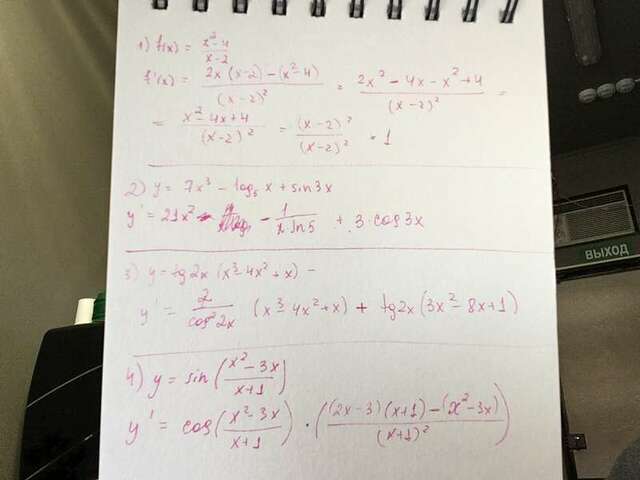 1) f(x) = x²-4 / x-2
f'(x) = 2x (x-2) - (x²-4) / (x-2)² = 2x² - 4x - x² + 4 / (x-2)² =
= x² - 4x + 4 / (x-2)² = (x-2)² / (x-2)² = 1
2) y = 7x³ - log₅ x + sin3x
y' = 21x² - 1 / x ln5 + 3 · cos3x
3) y = tg2x (x³ - 4x² + x) -
y' = 2 / cos²2x (x³ - 4x² + x) + tg2x (3x² - 8x + 1)
4) y = sin (x² - 3x / x+1)
y' = cos (x² - 3x / x+1) · ((2x-3)(x+1) - (x² - 3x) / (x+1)²)
ВЫХОД